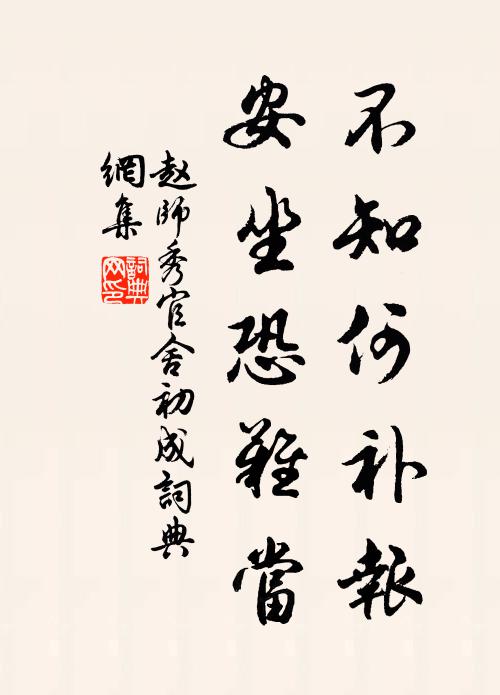 不知何补報
安坐恐難當
赵師秀官舍初成詞典
網集
詞典網印